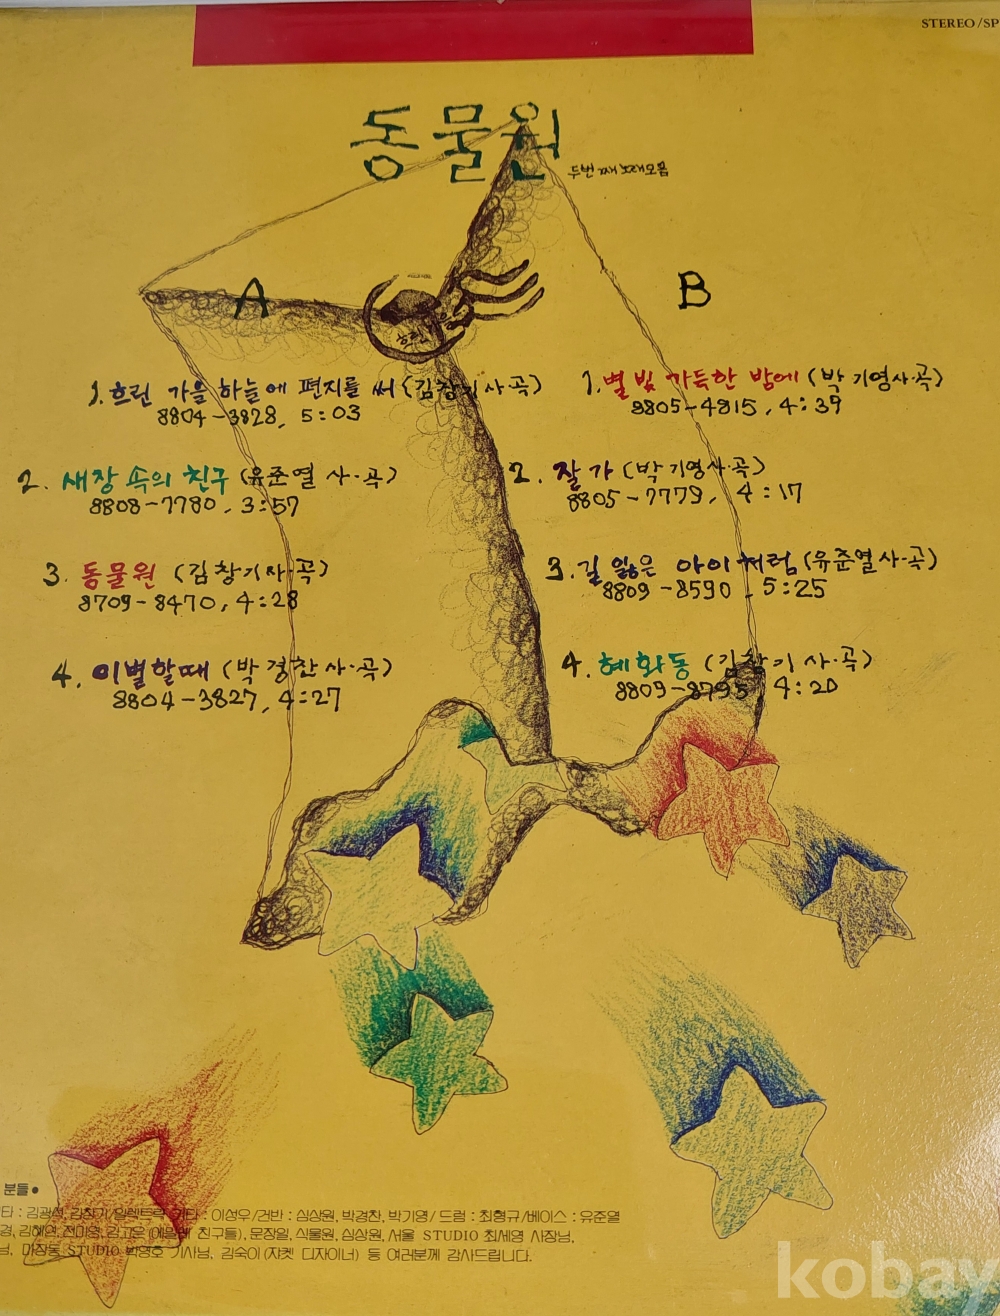 STEREO/SP
동물원
두번째 노래모음
A
흐린
B
1. 흐린 가을 하늘에 편지를 써 (김창기 사·곡)
8804-3828, 5:03
2. 새장 속의 친구 (유준열 사·곡)
8808-7780, 3:57
3. 동물원 (김창기 사·곡)
8709-8470, 4:28
4. 이별할때 (박경찬 사·곡)
8804-3827, 4:27
1. 별빛 가득한 밤에 (박기영 사·곡)
8805-4815, 4:39
2. 잘가 (박기영 사·곡)
8805-7779, 4:17
3. 길 잃은 아이처럼 (유준열 사·곡)
8809-8590, 5:25
4. 혜화동 (김창기 사·곡)
8809-8795, 4:20
분들●
타 : 김광석, 김창기/일렉트릭 기타 : 이성우/건반 : 심상원, 박경찬, 박기영/드럼 : 최형규/베이스 : 유준열
경, 김혜연, 전미영, 친구들), 문장일, 식물원, 심상원, 서울 STUDIO 최세영 사장님,
님, 마장동 STUDIO 박영호 기사님, 김숙이 (자켓 디자이너) 등 여러분께 감사드립니다.
kobay